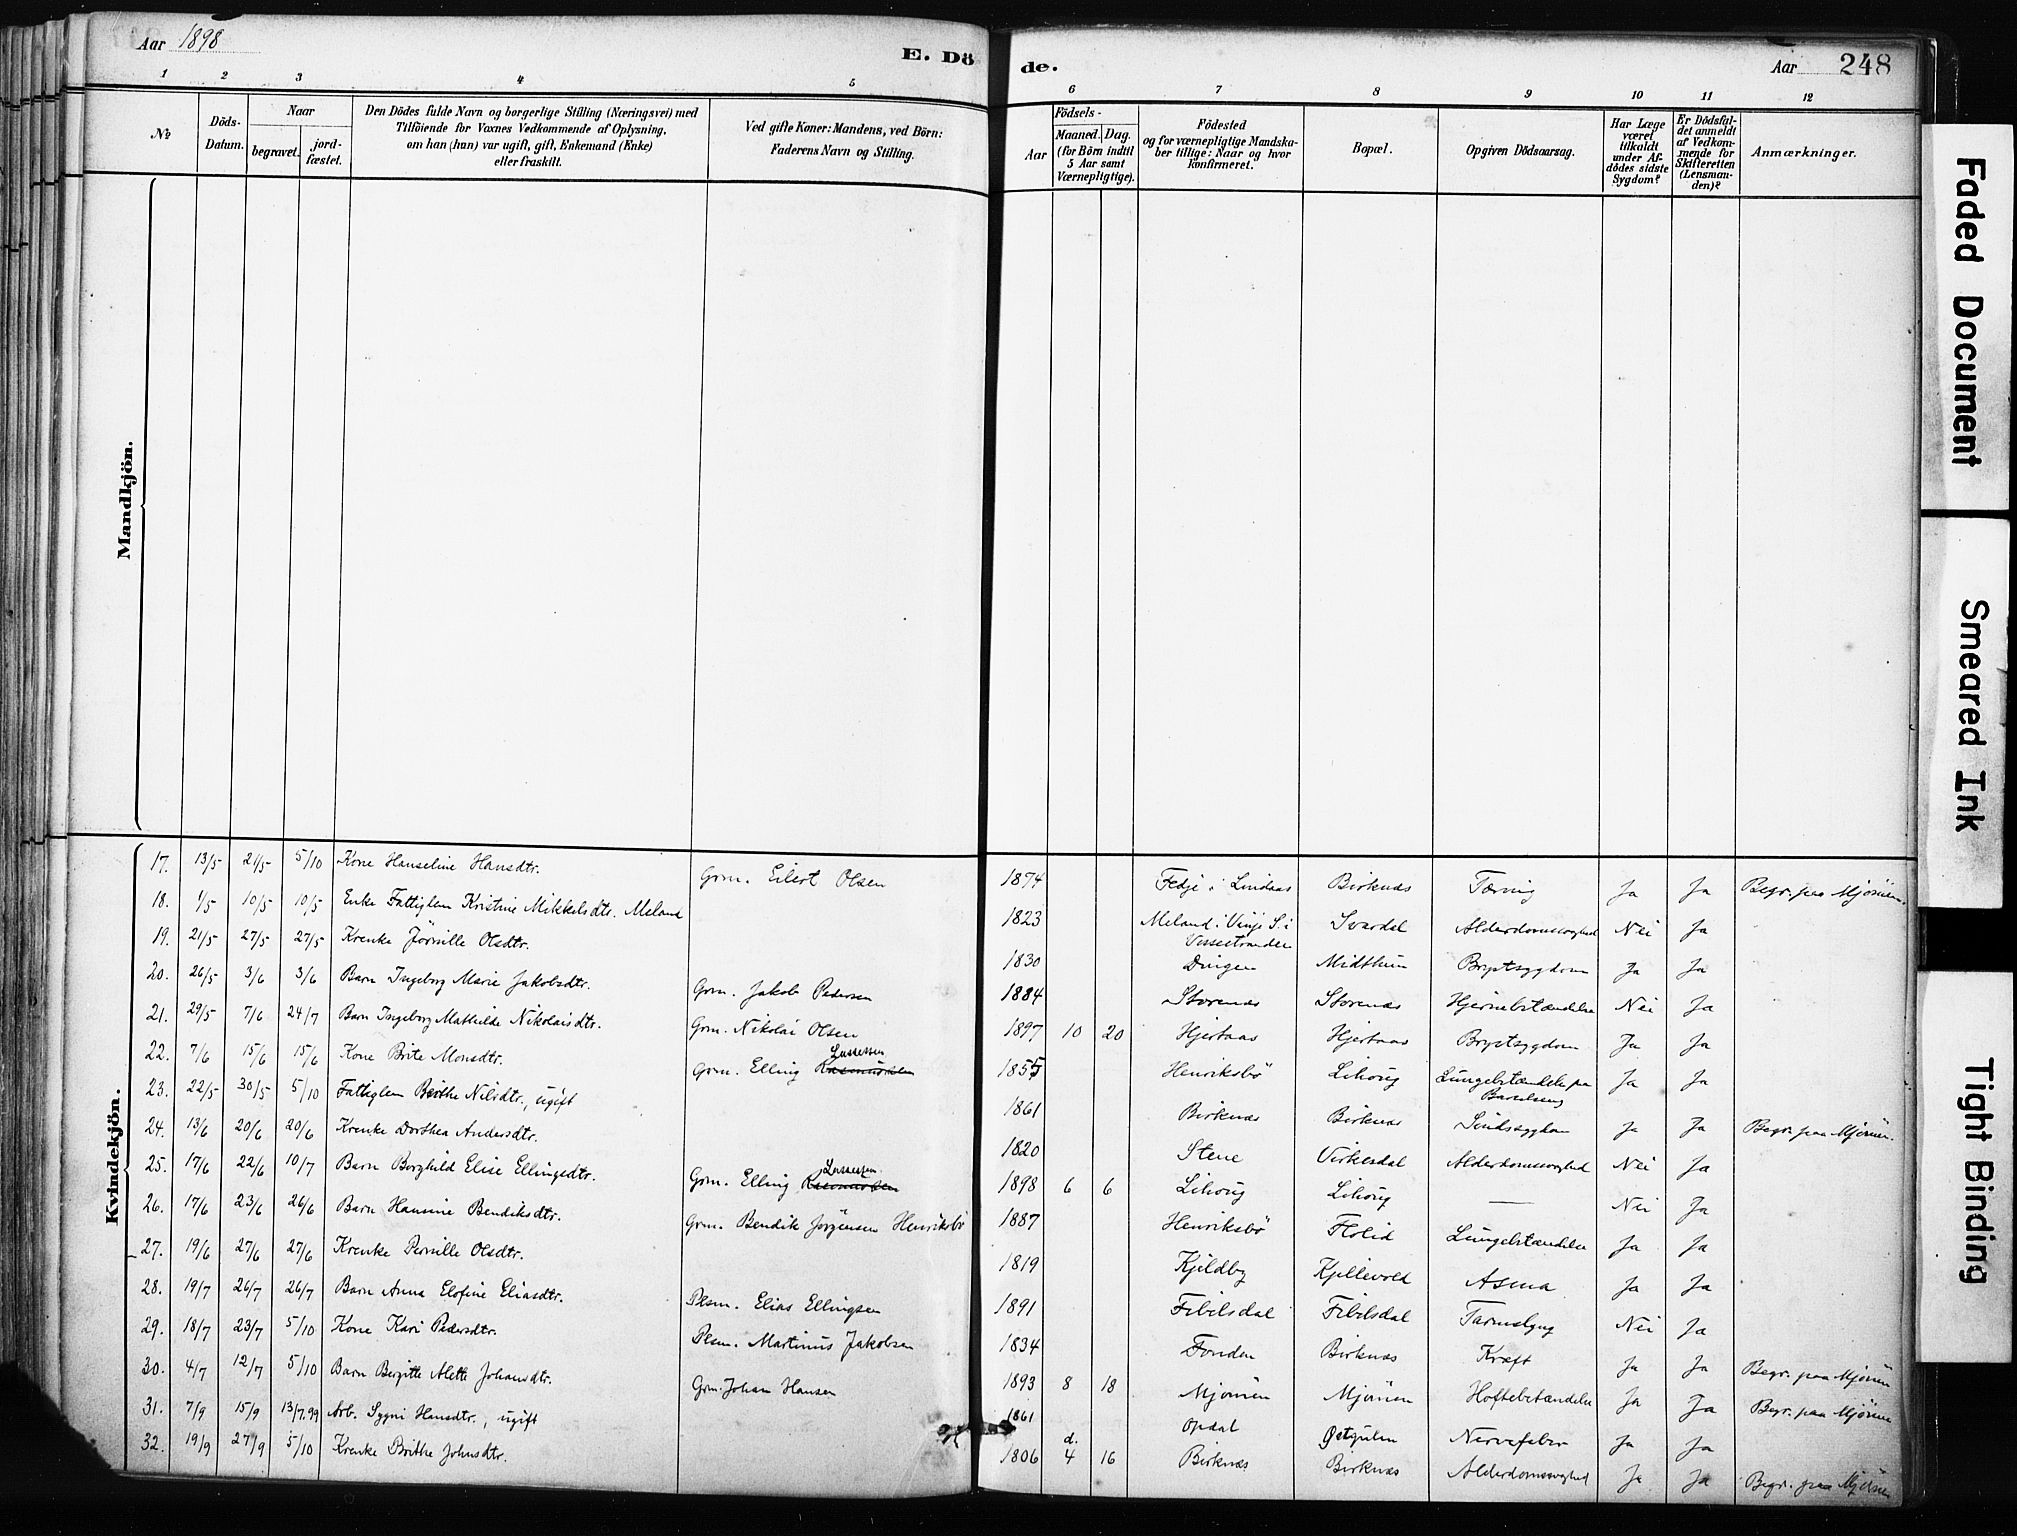 Aar 1898
E. Dö
de.
Aar
248
1 2 3 4 5
6 7 8 9 10 11 12
№
Döds-
Datum.
Naar
begravet.
jord-
fæstet.
Den Dödes fulde Navn og borgerlige Stilling (Næringsvei) med
Tilföiende for Voxnes Vedkommende af Oplysning,
om han (hun) var ugift, gift, Enkemand (Enke)
eller fraskilt.
Ved gifte Koner: Mandens, ved Börn:
Faderens Navn og Stilling.
Födsels-
Aar
Maaned. Dag.
(for Börn indtil
5 Aar samt
Værnepligtige).
Födested
og for værnepligtige Mandska-
ber tillige: Naar og hvor
konfirmeret.
Bopæl.
Opgiven Dödsaarsag.
Har Læge
været
tilkaldt
under Af-
dödes sidste
Sygdom?
Er Dödsfal-
det anmeldt
af Vedkom-
mende for
Skifteretten
(Lensman-
den)?
Anmærkninger.
Mandkjön.
Kvindekjön.
17. 13/5 21/5 5/10 Kone Hanseline Hansdtr. Grm. Eilert Olsen 1874 Fedje i Lindaas Birknæs Tæring Ja Ja Begr. paa Mjömen.
18. 1/5 10/5 10/5 Enke Fattiglem Kristine Mikkelsdtr. Meland 1823 Meland i Vinje S. i
Vossestranden Svardal Alderdomssvaghed Nei Ja
19. 21/5 27/5 27/5 Krenke Jörnille Olsdtr. 1830 Dingen Midthun Brystsygdom Ja Ja
20. 26/5 3/6 3/6 Barn Ingeborg Marie Jakobsdtr. Grm. Jakob Pedersen 1884 Storenæs Storenæs Hjernebetændelse Nei Ja
21. 29/5 7/6 24/7 Barn Ingeborg Mathilde Nikolaisdtr. Grm. Nikolai Olsen 1897 10 20 Hjertaas Hjertaas Brystsygdom Ja Ja
22. 7/6 15/6 15/6 Kone Brite Monsdtr. Grm. Elling Rasmussen Lassesen 1855 Henriksbö Lihoug Lungebetændelse paa
Barselseng Ja Ja
23. 22/5 30/5 5/10 Fattiglem Berthe Nilsdtr., ugift 1861 Birknæs Birknæs Sindssygdom Ja Ja Begr. paa Mjömen.
24. 13/6 20/6 20/6 Krenke Dorthea Andersdtr. 1820 Stene Virkesdal Alderdomssvaghed Nei Ja
25. 17/6 22/6 10/7 Barn Borghild Elise Ellingsdtr. Grm. Elling Rasmussen Lassesen 1898 6 6 Lihoug Lihoug — Nei Ja
26. 17/6 23/6 26/6 Barn Hansine Bendiksdtr. Grm. Bendik Jörgensen Henriksbö 1887 Henriksbö Flolid Lungebetændelse Ja Ja
27. 19/6 27/6 27/6 Krenke Pernille Olsdtr. 1819 Kjeldby Kjellevold Asma Ja Ja
28. 19/7 26/7 26/7 Barn Anna Elofine Eliasdtr. Plsm. Elias Ellingsen 1891 Fibilsdal Fibilsdal Tarmslyng Nei Ja
29. 18/7 23/7 5/10 Kone Kari Pedersdtr. Plsm. Martinus Jakobsen 1834 Fonden Birknæs Kræft Ja Ja Begr. paa Mjömen
30. 4/7 12/7 5/10 Barn Bergitte Alette Johansdtr. Grm. Johan Hansen 1893 8 18 Mjömen Mjömen Hoftebetændelse Ja Ja Begr. paa Mjömen
31. 7/9 15/9 13/7.99 Arb. Sygni Hansdtr., ugift 1861 Opdal Østgulen Nervefeber Ja Ja
32. 19/9 27/9 5/10 Krenke Brithe Johnsdtr. 1806 d. 4 16 Birknæs Birknæs Alderdomssvaghed Ja Ja Begr. paa Mjömen
Faded Document
Smeared Ink
Tight Binding